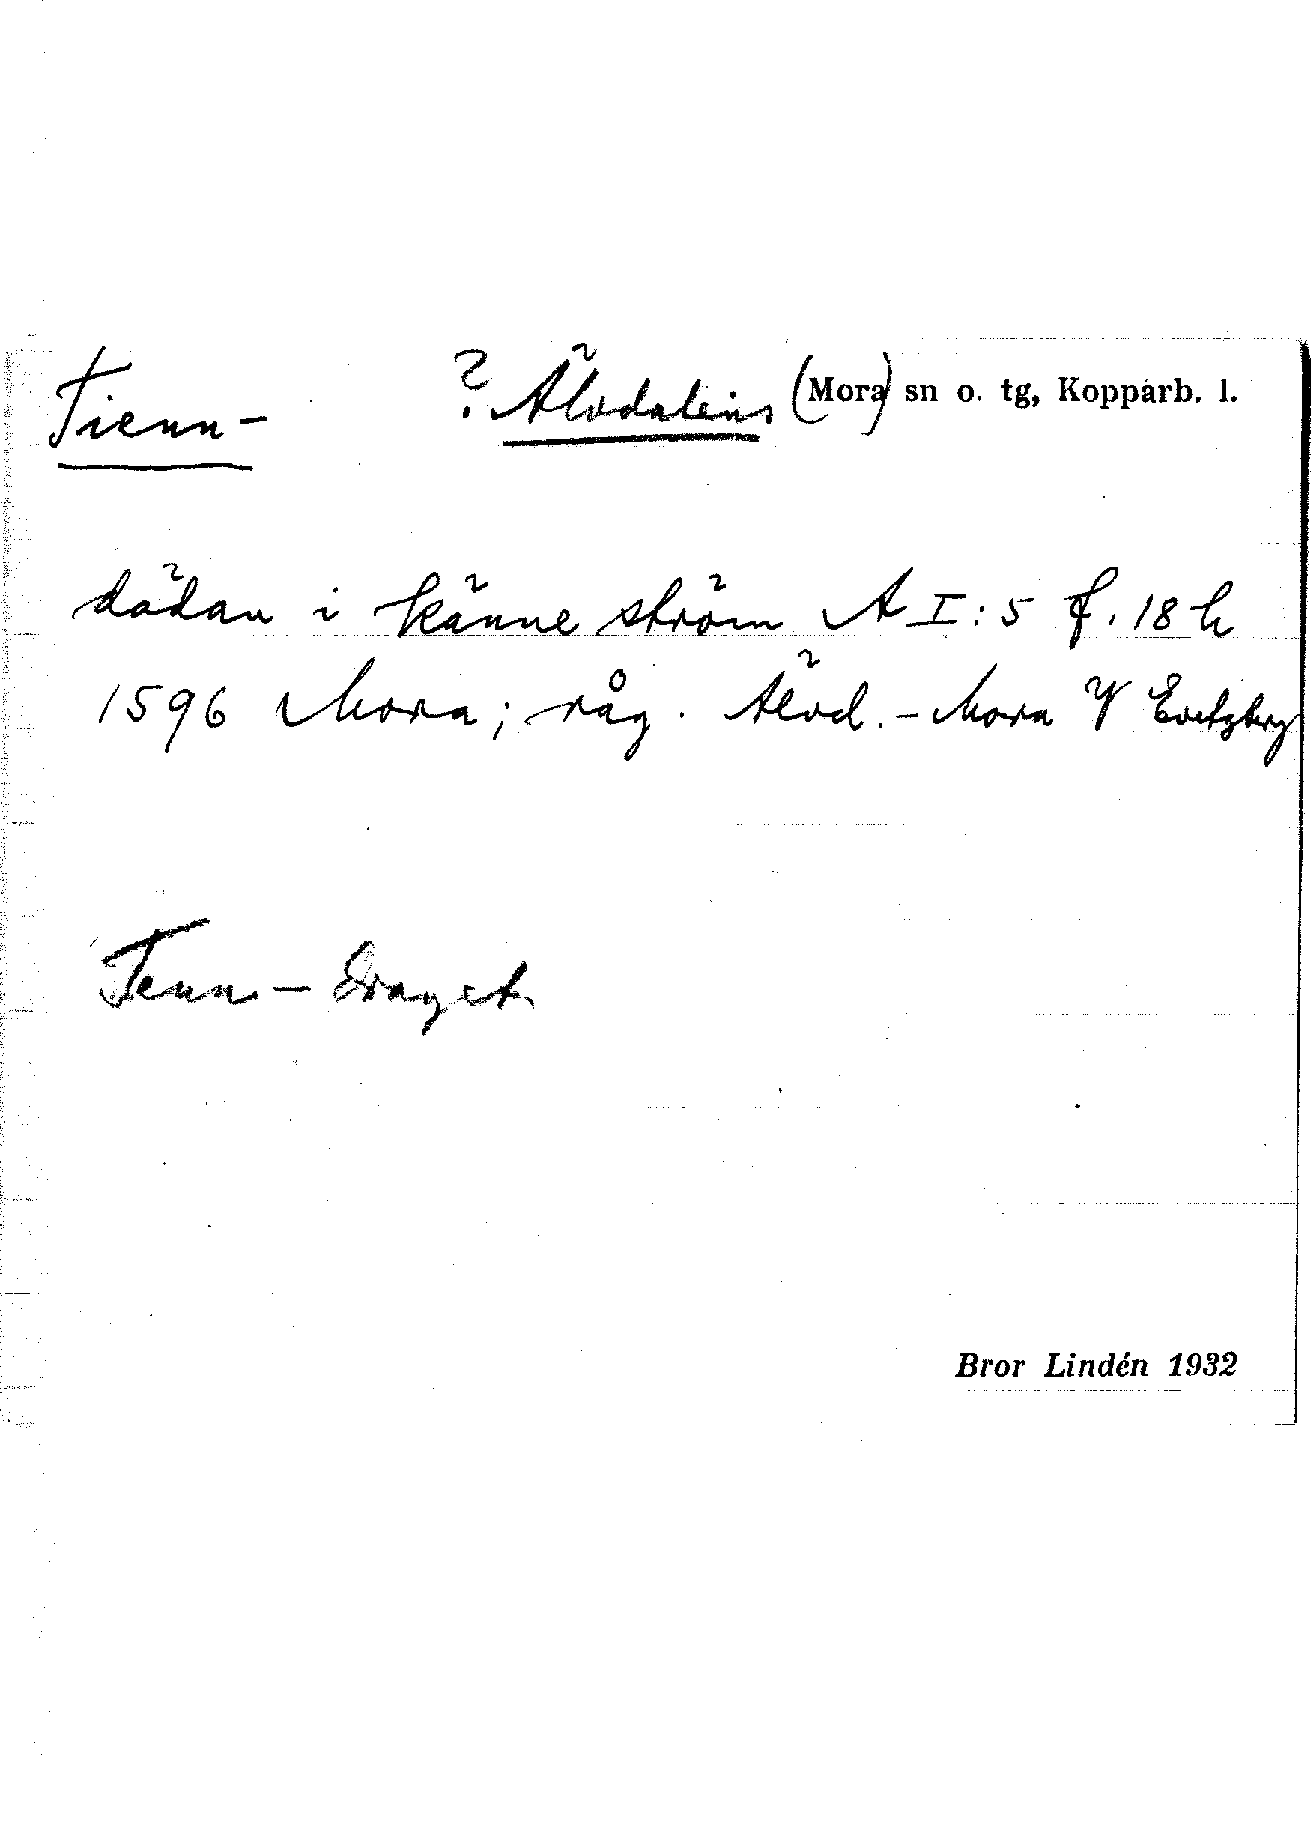 Tienn- ? Älvdalens (Mora) sn o. tg, Kopparb. l.
dädan i känne ström A I:5 f. 18 h
1596 Mora; råg. Älvd.-Mora
Tenn-draget
Bror Lindén 1932